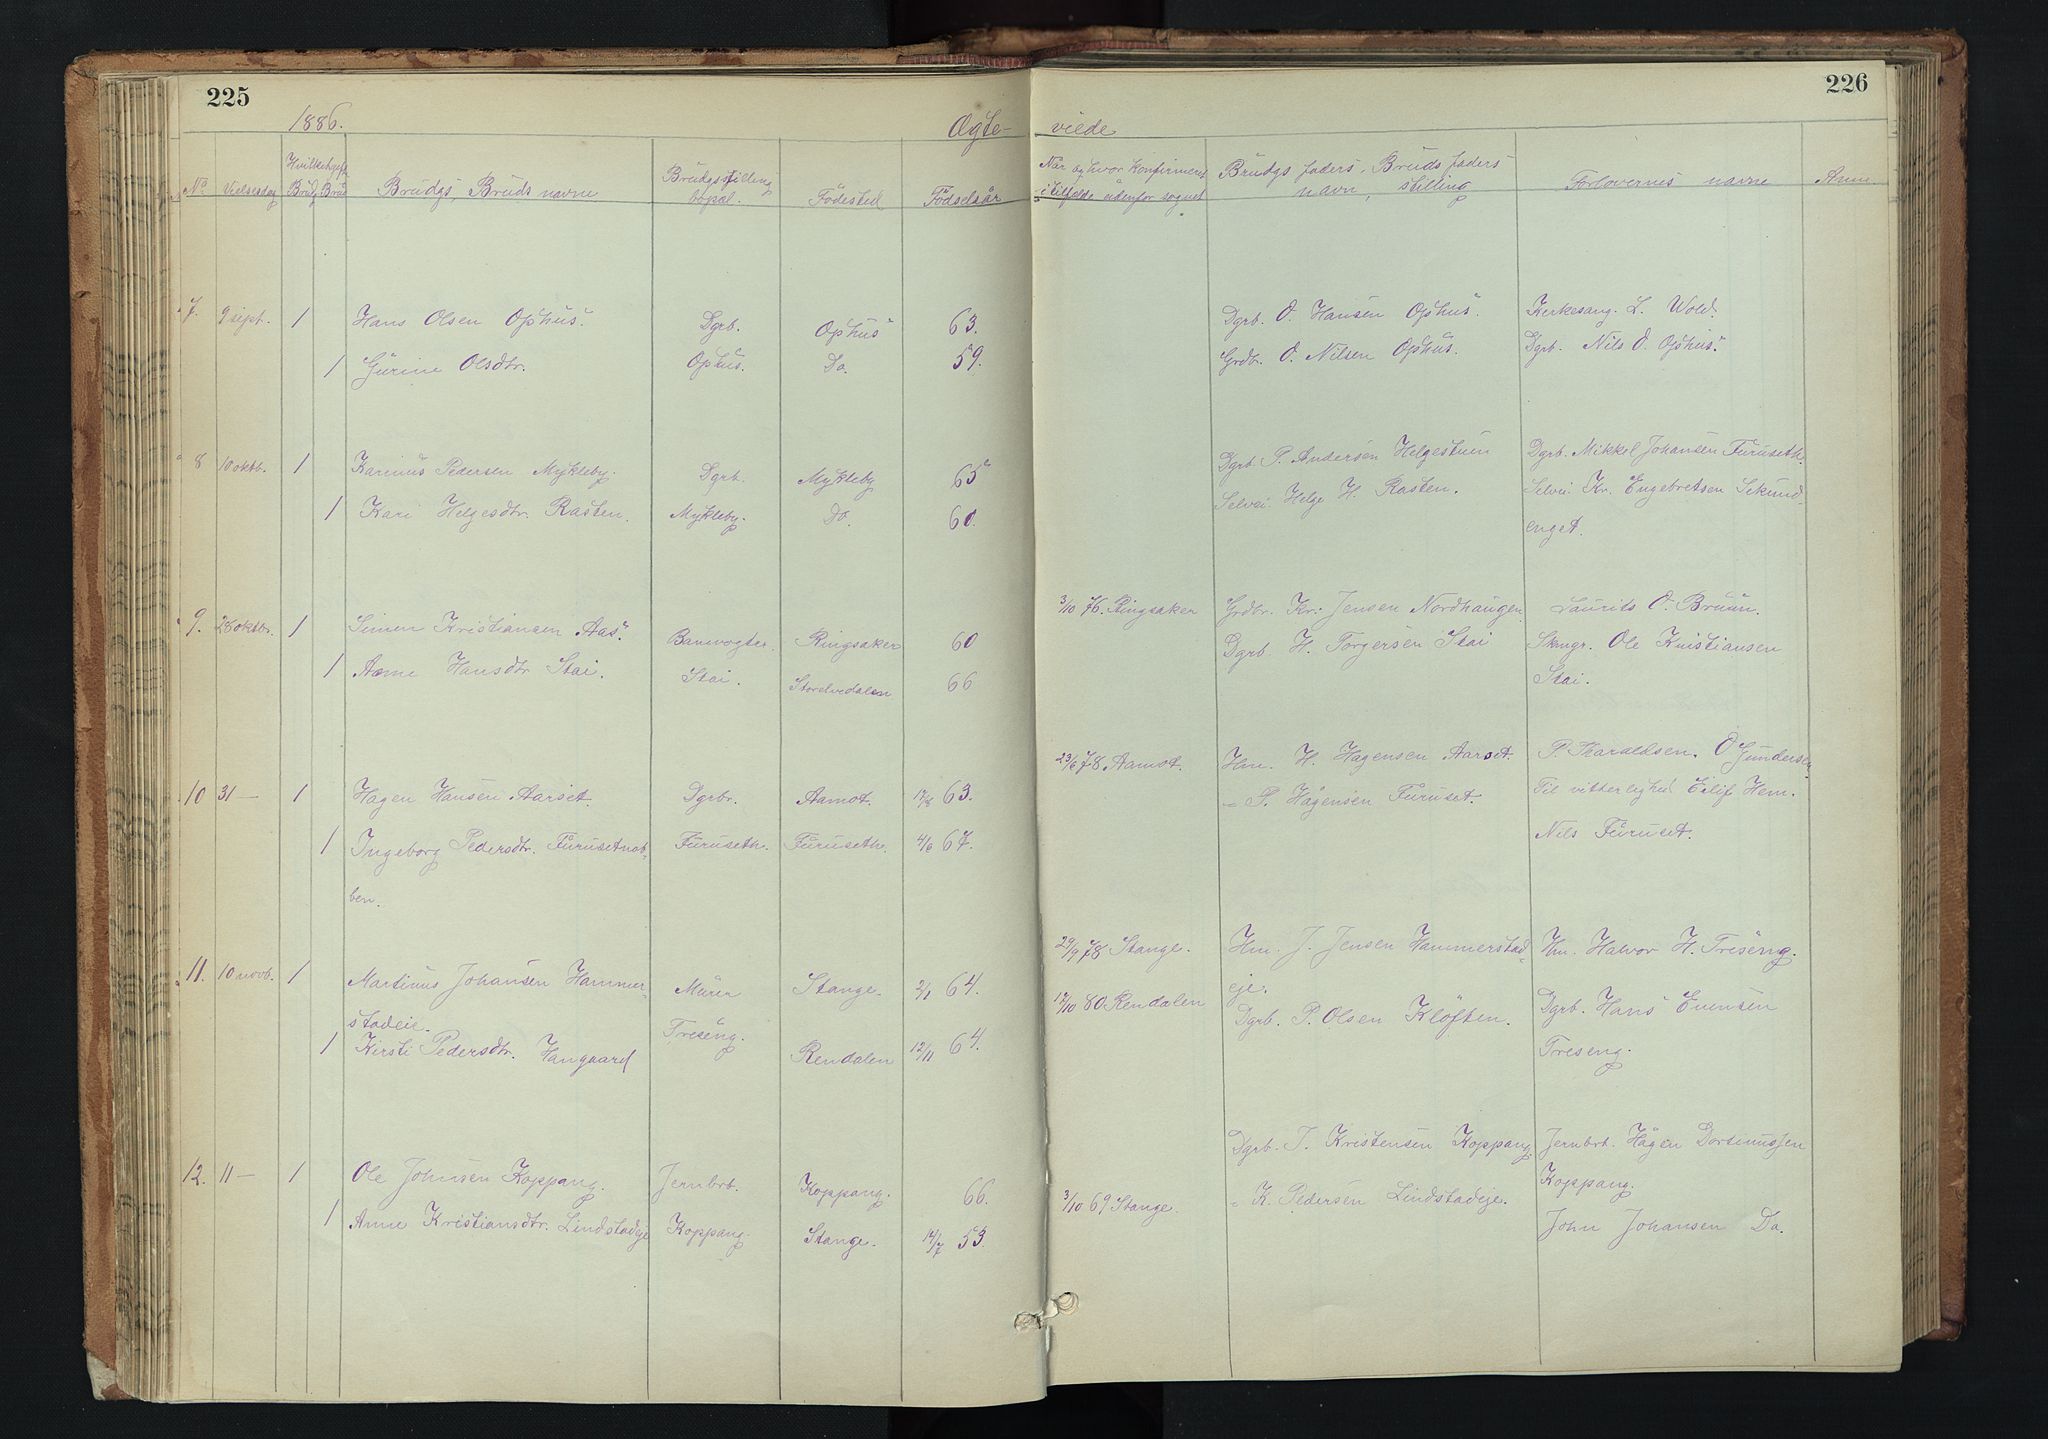 225
226
1886.
Ægte- viede
No. Vielsesdag Brudg. Brud Brudgs, Bruds navne Brudgs stilling bopæl. Födested Födselsår Når og hvor konfirmeret i tilfælde udenfor sognet Brudgs faders, Bruds faders navn, stilling Forlovernes navne Anm.
7. 9 sept. 1 Hans Olsen Ophus. Dgrb. Ophus 63. Dgrb. O. Hansen Ophus. Kerkesang. L. Wold.
1 Gurine Olsdtr. Ophus. Do. 59. Grdbr. O. Nilsen Ophus. Dgrb. Nils O. Ophus.
8 10 oktb. 1 Karinus Pedersen Mykleby. Dgrb. Mykleby 65 Dgrb. P. Andersen Helgestuen Dgrb. Mikkel Johansen Furuseth.
1 Kari Helgesdtr. Rasten. Mykleby. Do. 60. Selvei. Helge H. Rasten. Selvei. Kr. Engebretsen Sekund-
enget.
9. 28 oktbr. 1 Simen Kristiansen Aas. Banevogter. Ringsaker 60 3/10 76. Ringsaker Grdbr. Kr. Jensen Nordhaugen Laurits O. Bruun.
1 Anne Hansdtr Stai. Stai. Storelvedalen 66 Dgrb. H. Torgersen Stai Skmgr. Ole Kristiansen
Stai.
10 31 — 1 Hagen Hansen Aarset. Dgrbr. Aamot. 17/8 63. 23/6 78 Aamot. Hm. H. Hagensen Aarset. P. Haraldsen. O Gundersen.
1 Ingeborg Pedersdtr. Furusetnab- Furuseth. Furuseth. 4/6 67. " P. Hagensen Furuset. Til vitterlighed Eilif Hem.
ben. Nils Furuset.
11. 10 novb. 1 Martinus Johansen Hammer- Murer Stange. 2/1 64. 29/9 78 Stange. Hm. J. Jensen Hammerstad- Hm. Halvor H. Treseng.
stadeie. Treseng. eje.
1 Kirsti Pedersdtr. Hangaard Rendalen 12/11 64. 17/10 80. Rendalen Dgrb. P. Olsen Klöften. Dgrb. Hans Evensen
Treseng.
12. 11 — 1 Ole Johnsen Koppang. Jernbrb. Koppang. 66. Dgrb. J. Kristensen Koppang. Jernbrb. Hågen Dortinussen
Koppang.
1 Anne Kristiansdtr. Lindstadeje Koppang. Stange. 14/7 53. 3/10 69 Stange. " K. Pedersen Lindstadeje.
John Johansen Do.